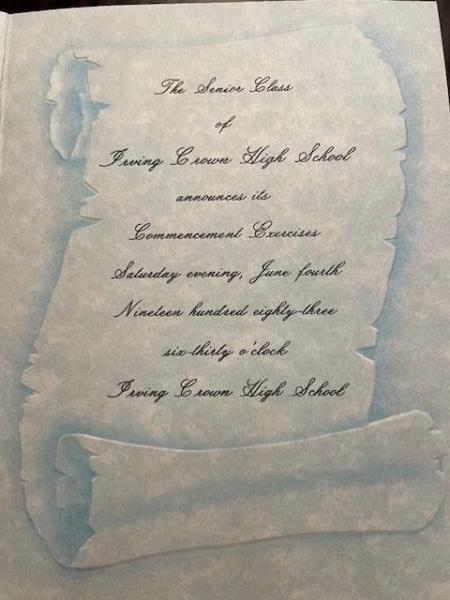 The Senior Class
of
Irving Crown High School
announces its
Commencement Exercises
Saturday evening, June fourth
Nineteen hundred eighty-three
six-thirty o'clock
Irving Crown High School